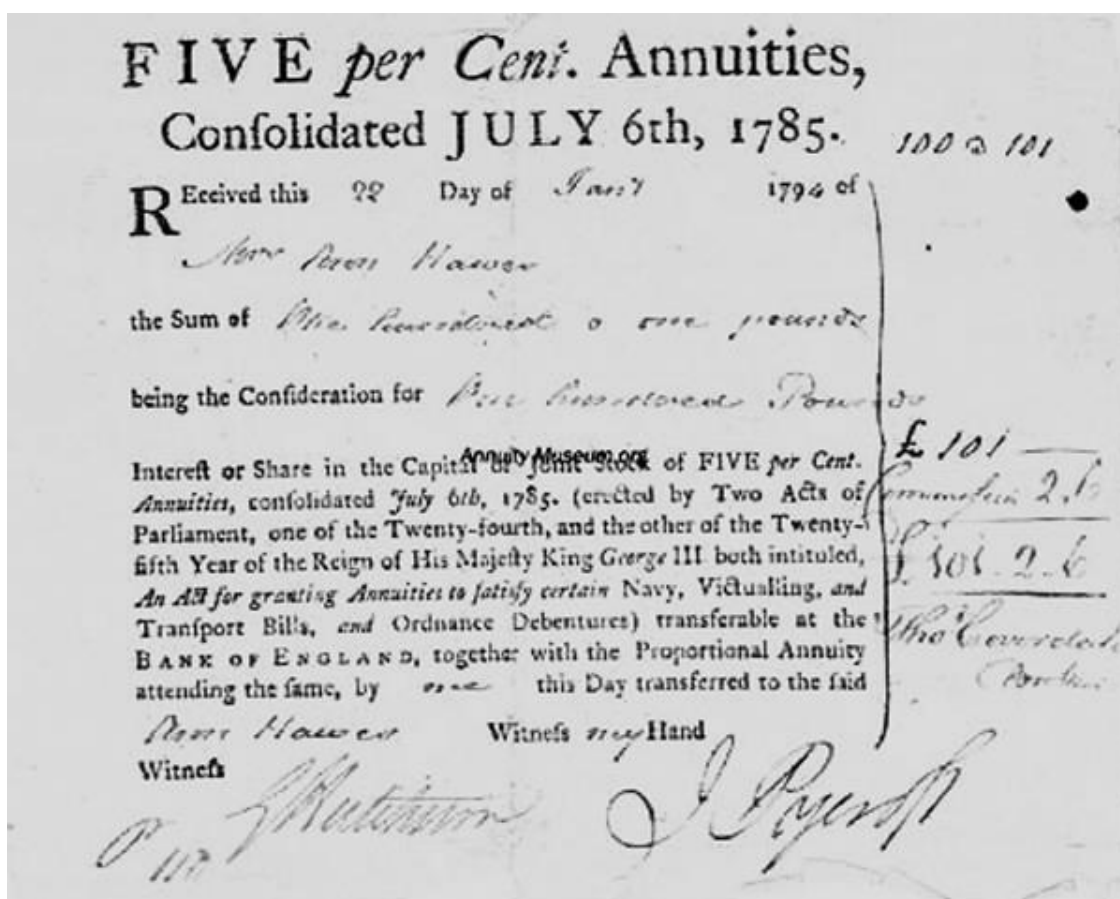 FIVE per Cent. Annuities,
Conſolidated JULY 6th, 1785.
100 a 101
REceived this 22 Day of Janʸ 1794 of
Mrs Ann Hawes
the Sum of One hundred & one pounds
being the Conſideration for One hundred Pounds
Intereſt or Share in the Capital or Joint Stock of FIVE per Cent.
Annuity Museum.org
Annuities, conſolidated July 6th, 1785. (erected by Two Acts of
Parliament, one of the Twenty-fourth, and the other of the Twenty-
fifth Year of the Reign of His Majeſty King George III both intituled,
An Act for granting Annuities to ſatisfy certain Navy, Victualling, and
Tranſport Bills, and Ordnance Debentures) transferable at the
BANK OF ENGLAND, together with the Proportional Annuity
attending the ſame, by me this Day transferred to the ſaid
Ann Hawes Witneſs my Hand
Witneſs
£ 101
2.6
£ 101.2.6
Thoˢ Coverdale